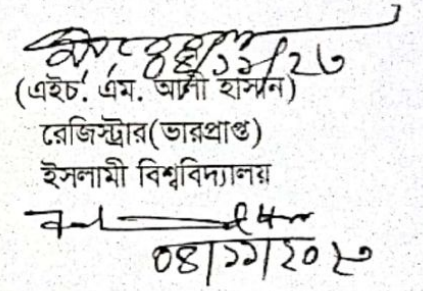 ০৪/১১/২৩
(এইচ. এম. আলী হাসান)
রেজিস্ট্রার(ভারপ্রাপ্ত)
ইসলামী বিশ্ববিদ্যালয়
০৪/১১/২০২৩